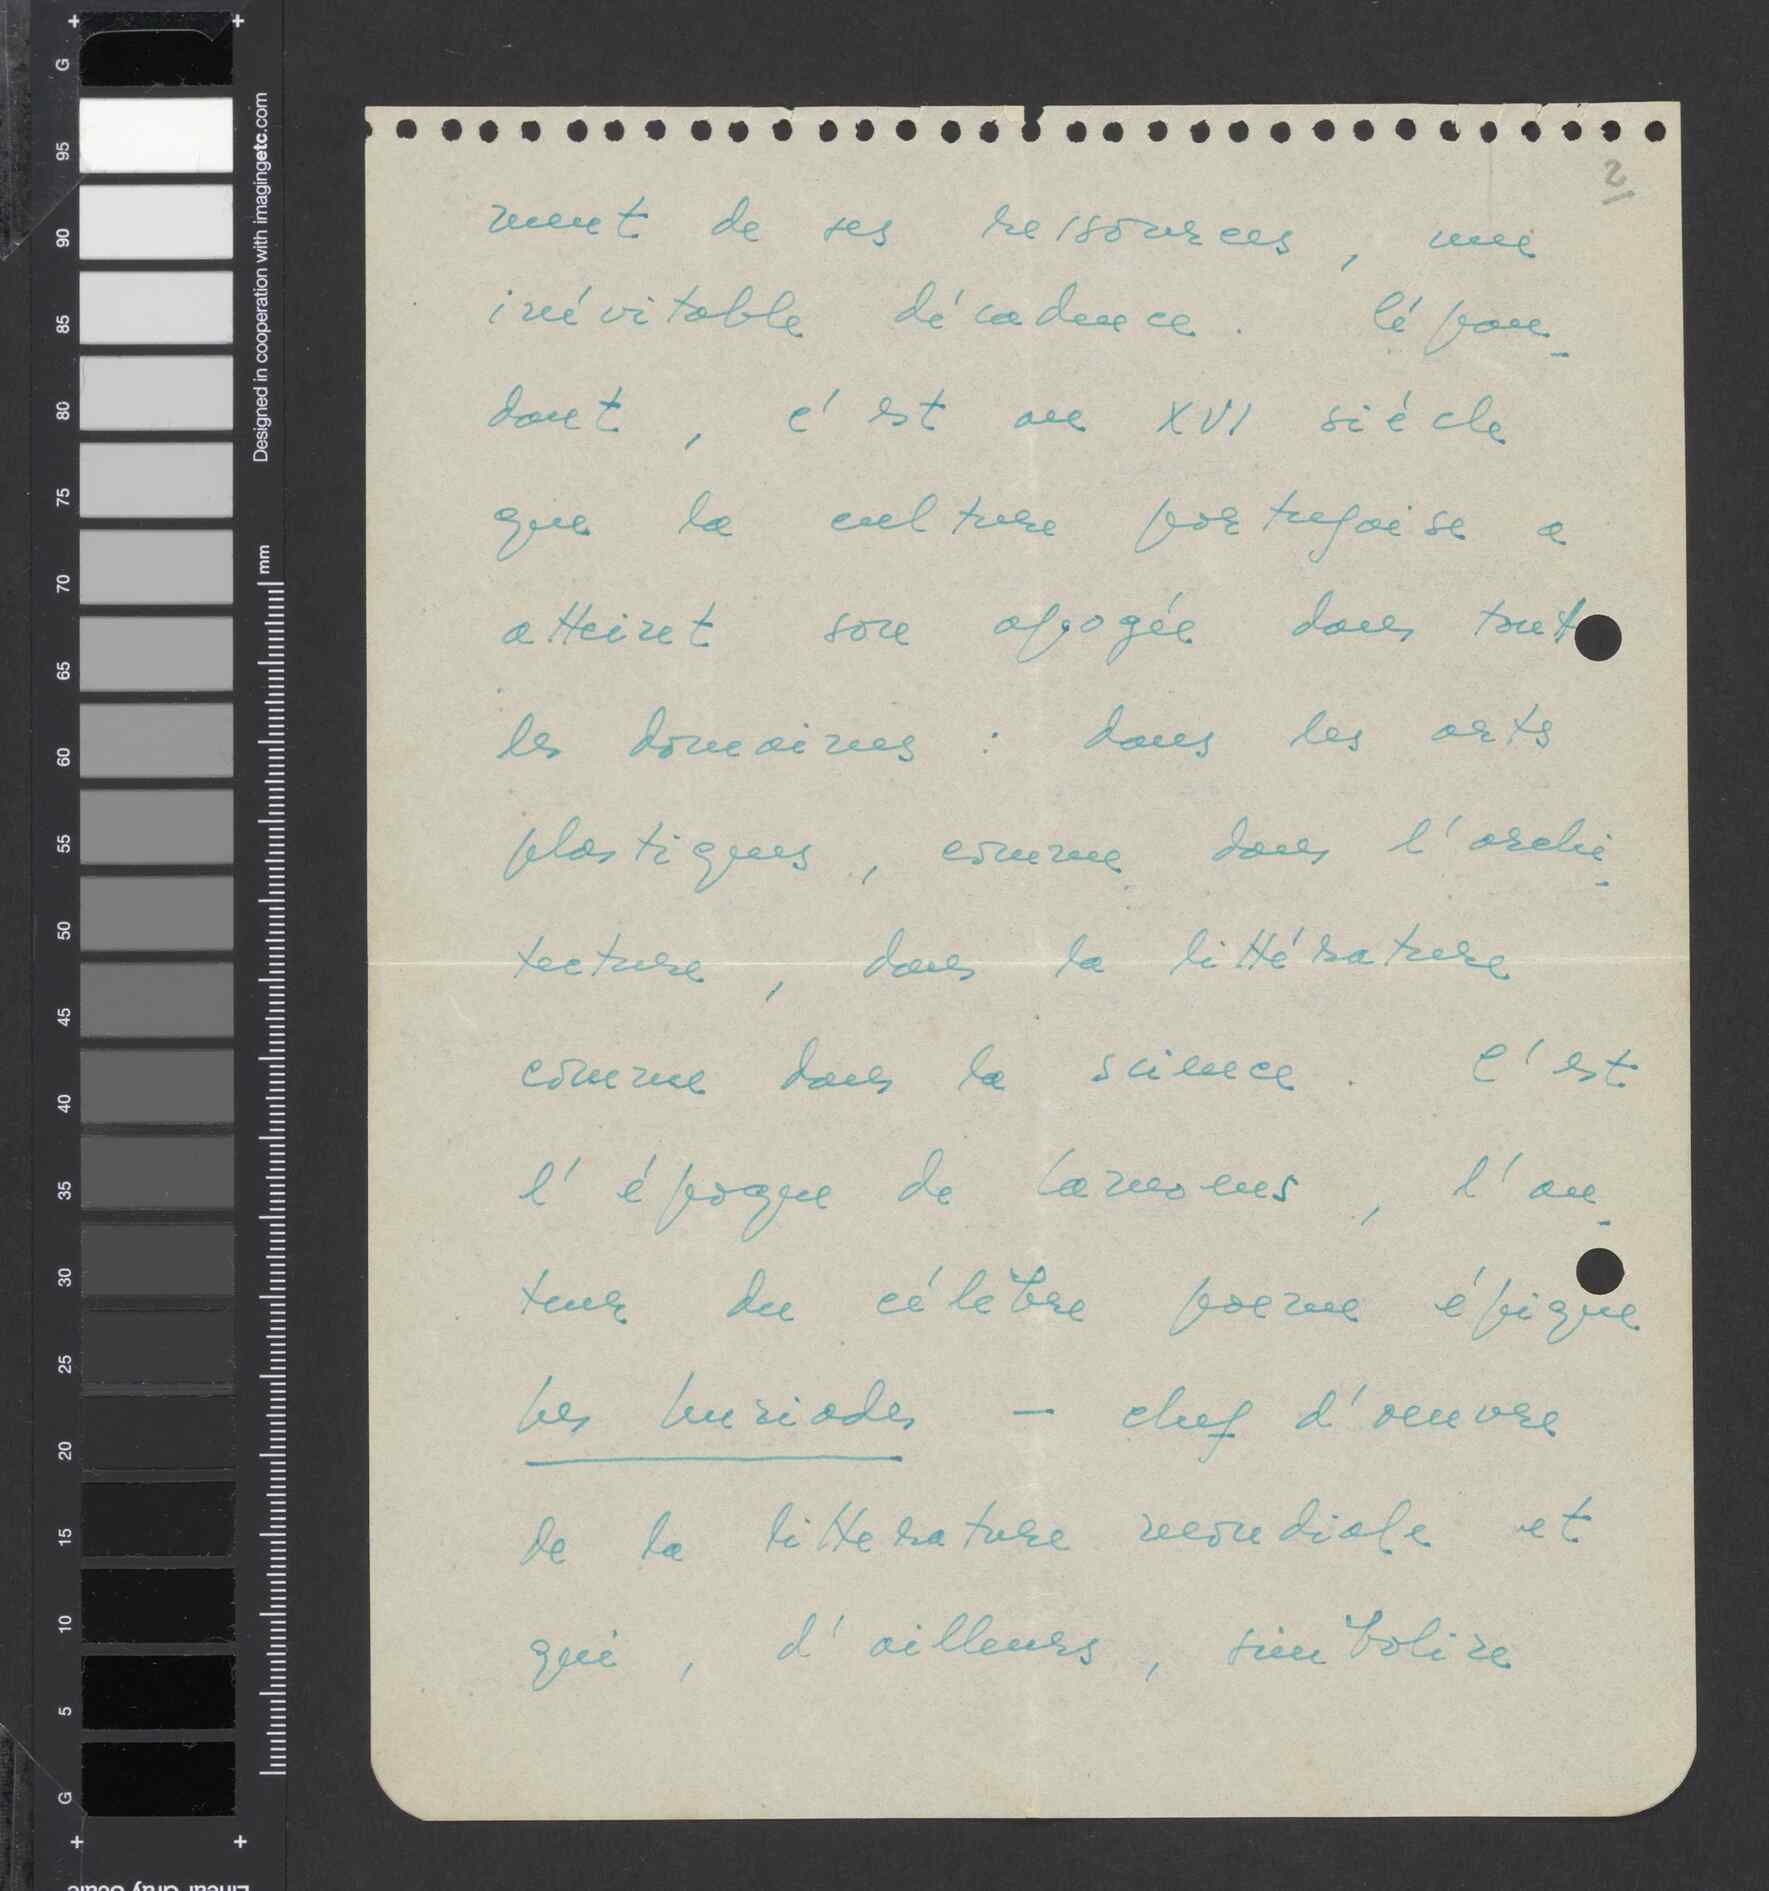 2
ment de ses ressources, une
inévitable décadence. Cépen-
dant, c'est au XVI siécle
que la culture portugaise a
atteint son apogée dans tout
les domaines : dans les arts
plastiques, comme dans l'archi-
tecture, dans la littérature
comme dans la science. C'est
l'époque de Camoens, l'au-
teur du célèbre poeme épique
Les Lusiades – chef d'oeuvre
de la litterature mondiale et
qui, d'ailleurs, simbolize
G
95
90
85
80
75
70
65
60
55
50
45
40
35
30
25
20
15
10
5
G
Designed in cooperation with imagingetc.com
mm
Linear Gray Scale